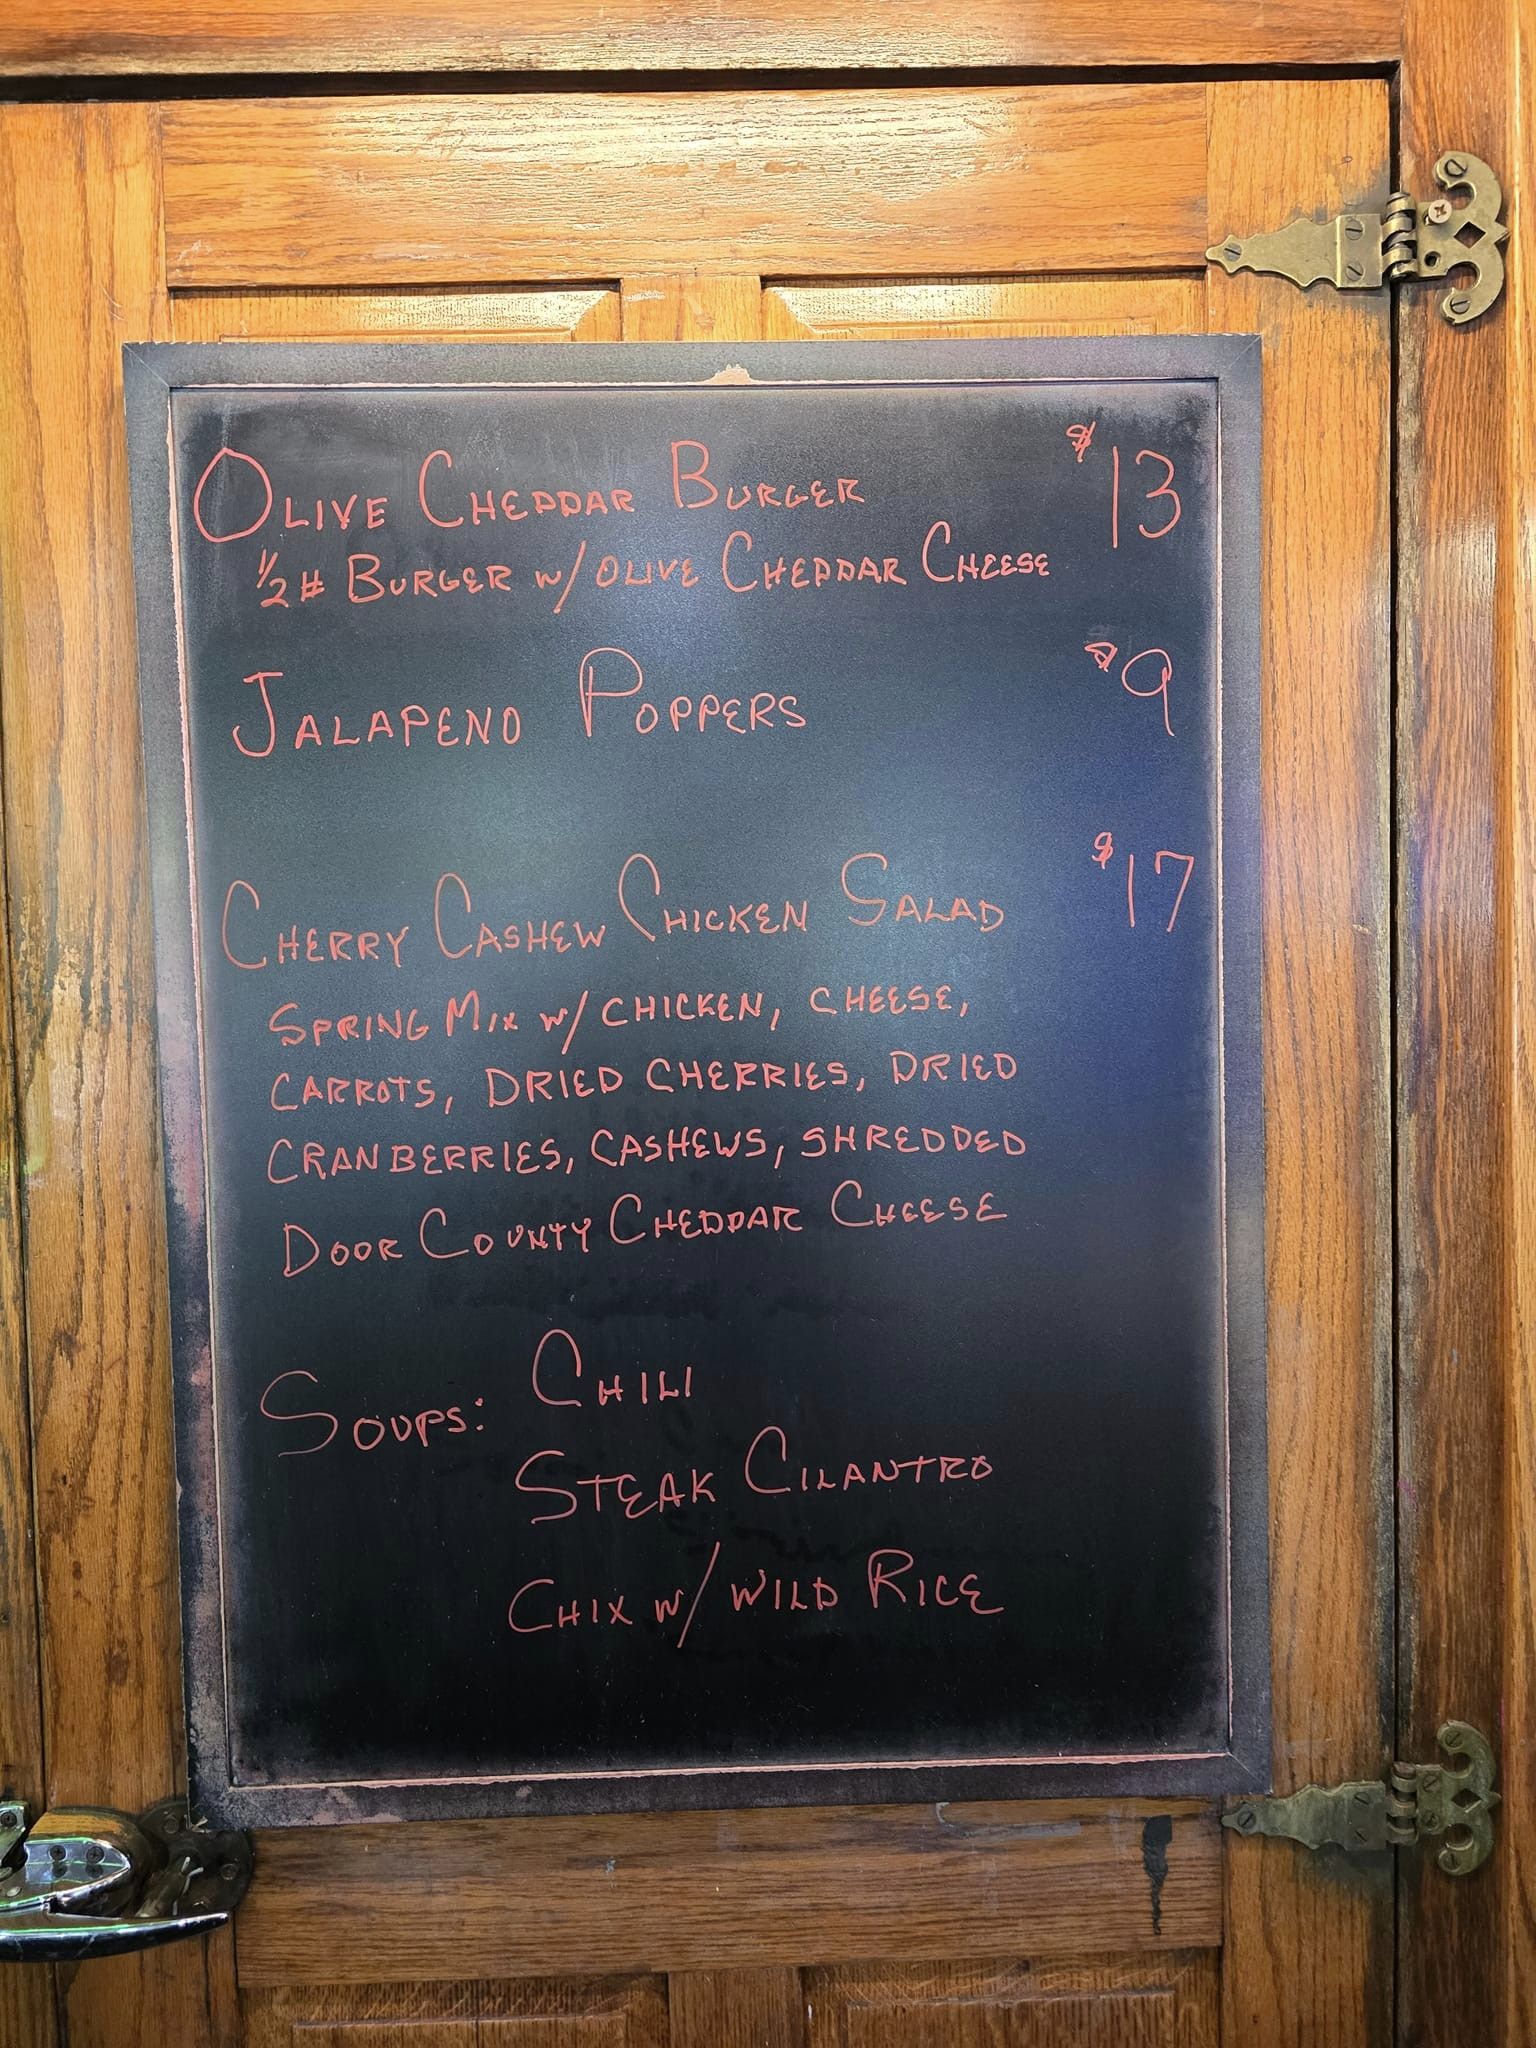 Olive Cheddar Burger $13
1/2 # Burger w/ Olive Cheddar Cheese
Jalapeno Poppers $9
Cherry Cashew Chicken Salad $17
Spring Mix w/ chicken, cheese,
carrots, dried cherries, dried
cranberries, cashews, shredded
Door County Cheddar Cheese
Soups: Chili
Steak Cilantro
Chix w/ wild Rice